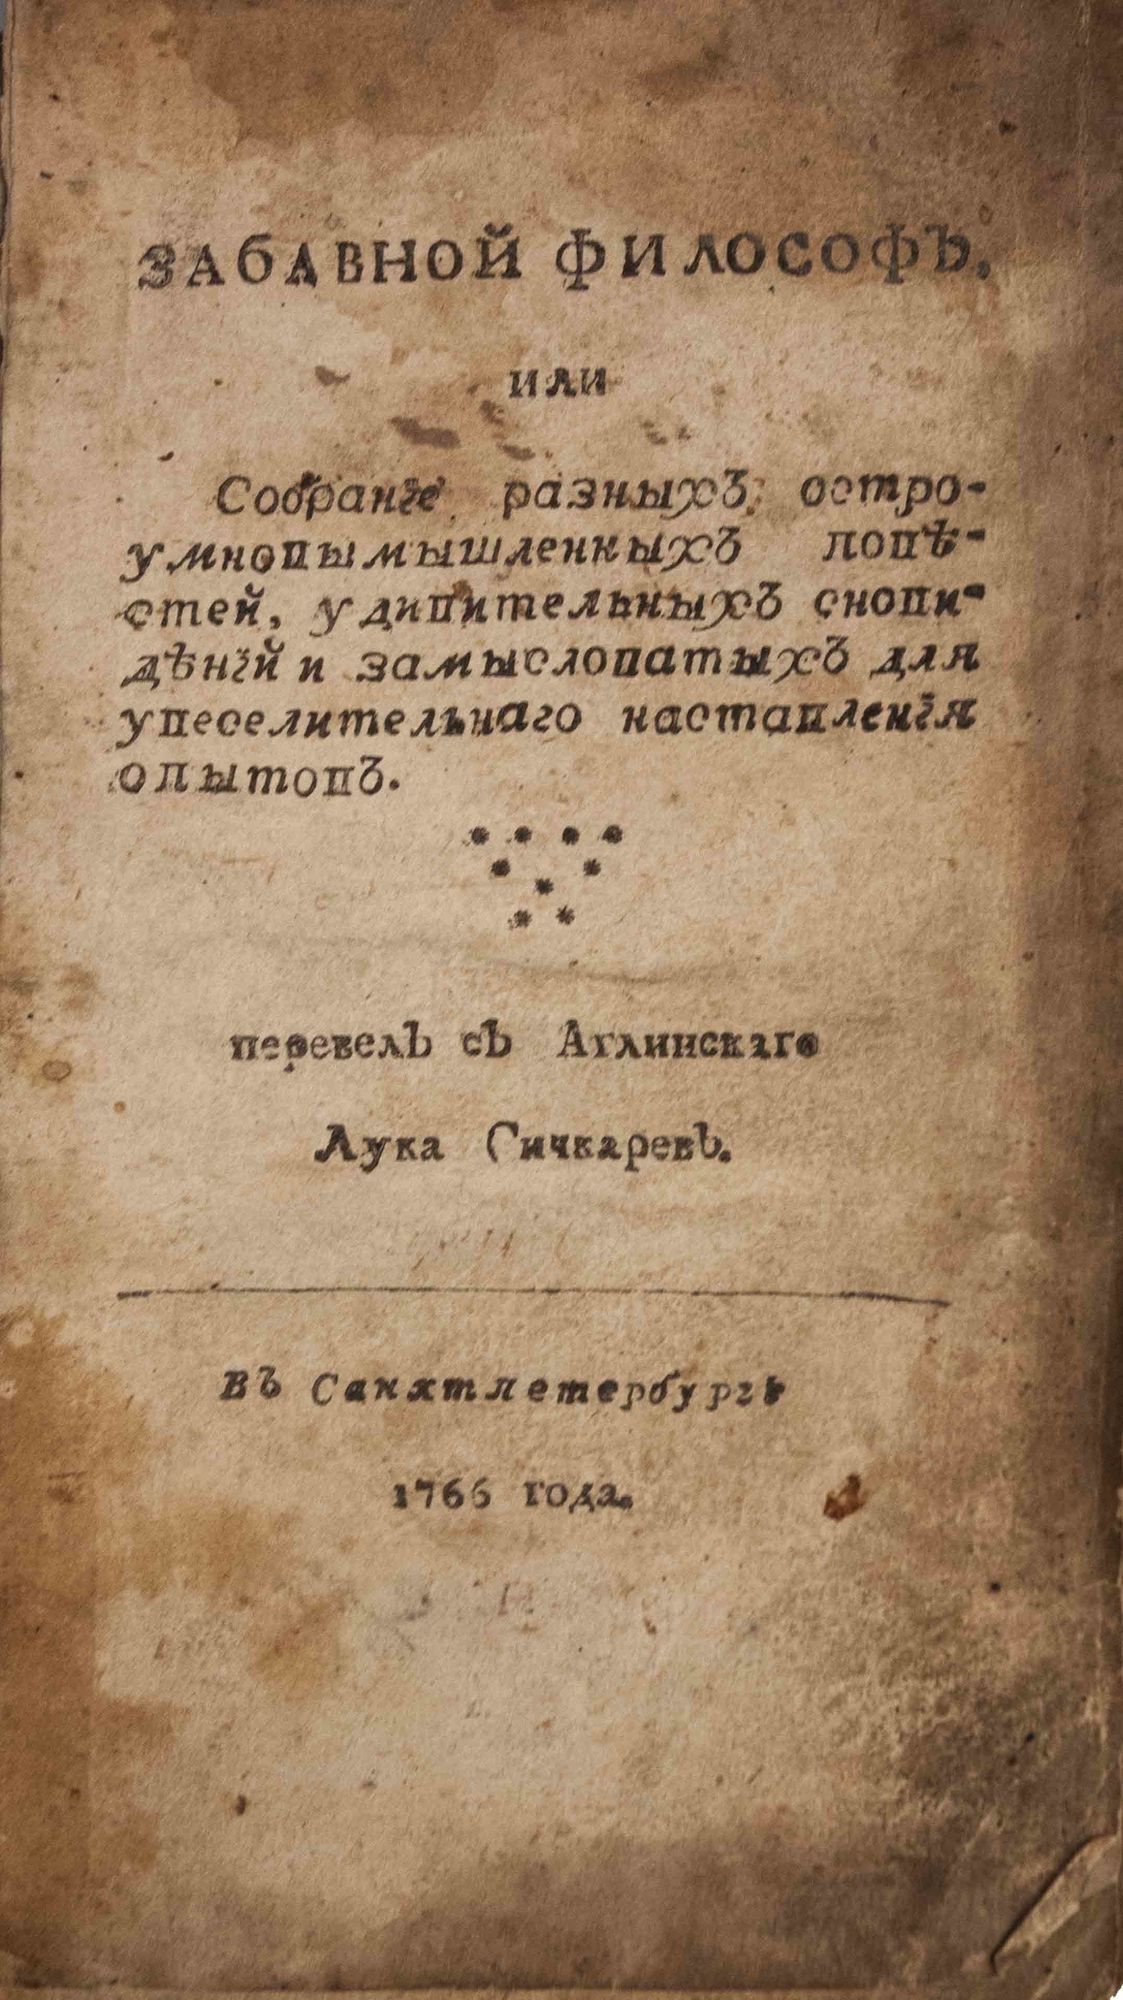 ЗАБАВНОЙ ФИЛОСОФЪ,
или
Собраніе разныхъ остро-
умновымышленныхъ повѣ-
стей, удивительныхъ снови-
дѣній и замысловатыхъ для
увеселительнаго наставленія
опытовъ.
перевелъ съ Аглинскаго
Лука Сичкаревъ.
въ Санктпетербургѣ
1766 года.